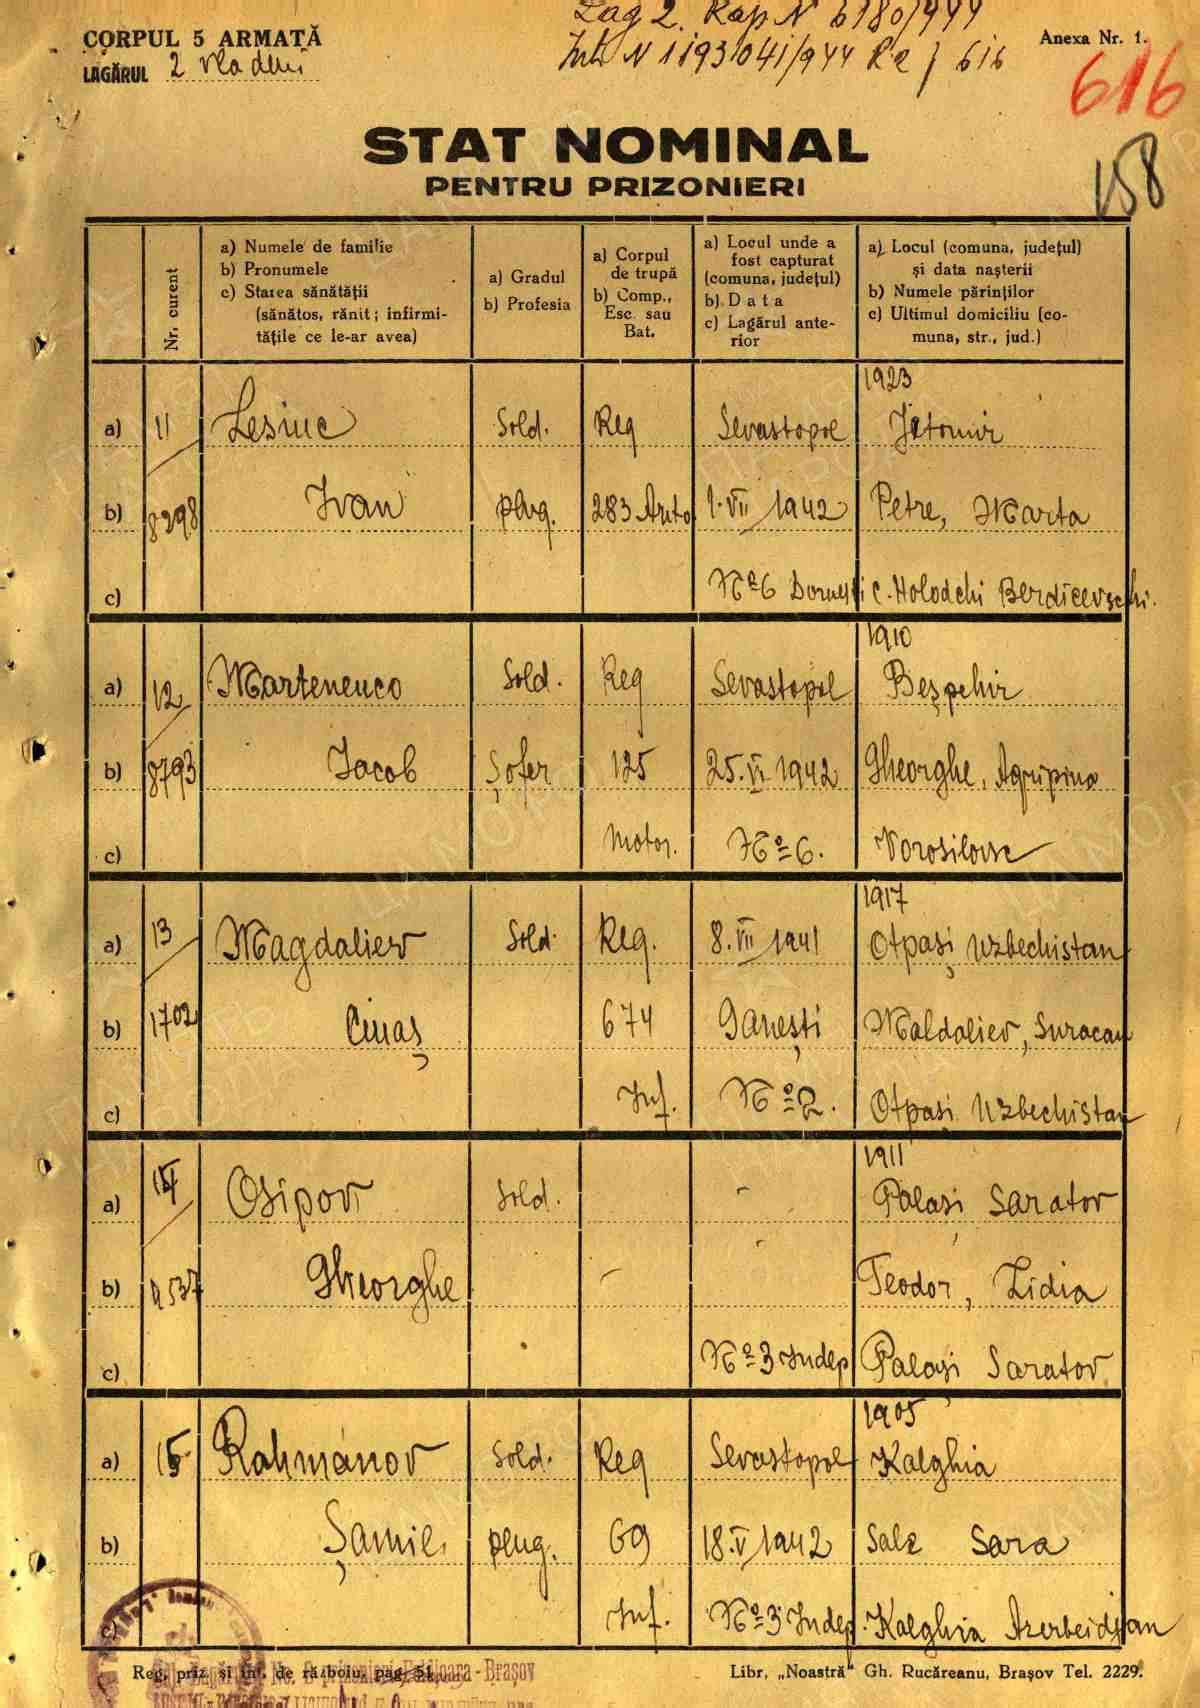 CORPUL 5 ARMATĂ
LAGĂRUL 2 Vlădeni
Lag 2. Rap N 6180/944
Int. N 1193041/944 Re / 616
Anexa Nr. 1.
616
158
STAT NOMINAL
PENTRU PRIZONIERI
Nr. curent
a) Numele de familie
b) Pronumele
c) Starea sănătății
(sănătos, rănit; infirmi-
tățile ce le-ar avea)
a) Gradul
b) Profesia
a) Corpul
de trupă
b) Comp.,
Esc. sau
Bat.
a) Locul unde a
fost capturat
(comuna, județul)
b) Data
c) Lagărul ante-
rior
a) Locul (comuna, județul)
și data nașterii
b) Numele părinților
c) Ultimul domiciliu (co-
muna, str., jud.)
1923
a) 11 Lesiuc Sold. Reg Sevastopol Jitomir
b) 8298 Ivan plug. 283 Auto 1.VII 1942 Petre, Marta
c) No 6 Dornești C. Holodchi Berdicevschi.
1910
a) 12 Marteneuco Sold. Reg Sevastopol Beșpehir
b) 8793 Iacob Șofer 125 25.VI 1942 Gheorghe, Agripina
c) Motor. No 6. Vorosilovsc
1917
a) 13 Magdaliev Sold. Reg. 8.VII 1941 Otpași Uzbechistan
b) 1702 Cinaș 674 Ganești Maldaliev, Suracan
c) Inf. No 2. Otpași Uzbechistan
1911
a) 14 Osipov Sold. Palași Saratov
b) 4537 Gheorghe Teodor, Lidia
c) No 3 Indep Palași Saratov
1905
a) 15 Rahmanov Sold. Reg Sevastopol Kalghia
b) Șamil. plug. 69 18.V 1942 Sale Sara
c) Inf. No 3 Indep. Kalghia Azerbeidjan
Reg. priz. și int. de războiu, pag. 51.
Libr. „Noastră" Gh. Rucăreanu, Brașov Tel. 2229.